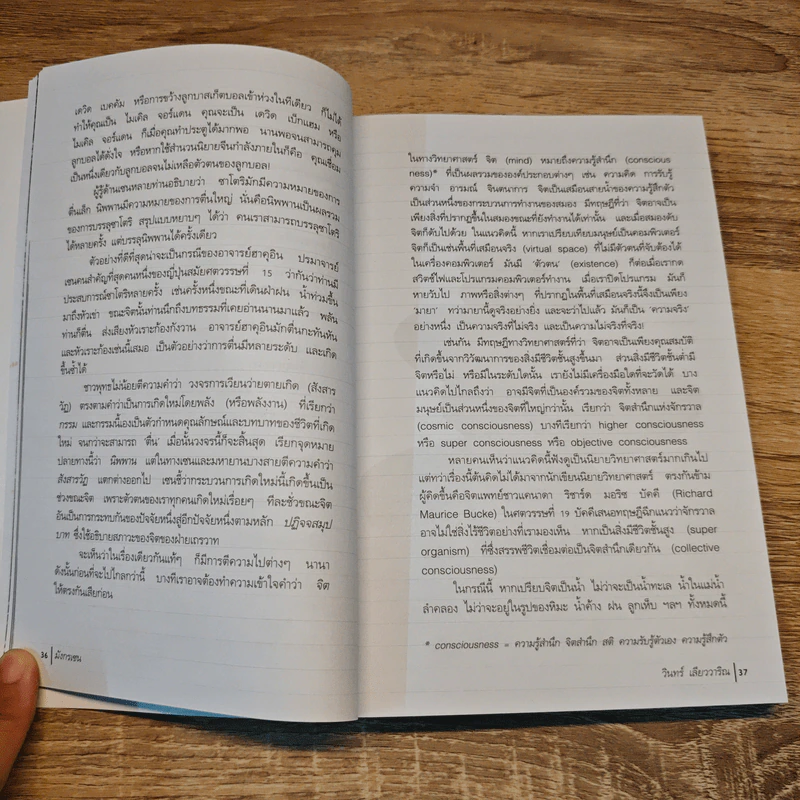 เดวิด เบคคัม หรือการขว้างลูกบาสเก็ตบอลเข้าห่วงในทีเดียว ก็ไม่ได้
ทำให้คุณเป็น ไมเคิล จอร์แดน คุณจะเป็น เดวิด เบ็กแฮม หรือ
ไมเคิล จอร์แดน ก็เมื่อคุณทำประตูได้มากพอ นานพอจนสามารถคุม
ลูกบอลได้ดังใจ หรือหากใช้สำนวนนิยายจีนกำลังภายในก็คือ คุณเชื่อม
เป็นหนึ่งเดียวกับลูกบอลจนไม่เหลือตัวตนของลูกบอล!
ผู้รู้ด้านเซนหลายท่านอธิบายว่า ซาโตริมักมีความหมายของการ
ตื่นเล็ก นิพพานมีความหมายของการตื่นใหญ่ นั่นคือนิพพานเป็นผลรวม
ของการบรรลุซาโตริ สรุปแบบหยาบๆ ได้ว่า คนเราสามารถบรรลุซาโตริ
ได้หลายครั้ง แต่บรรลุนิพพานได้ครั้งเดียว
ตัวอย่างที่ดีที่สุดน่าจะเป็นกรณีของอาจารย์ฮาคูอิน ปรมาจารย์
เซนคนสำคัญที่สุดคนหนึ่งของญี่ปุ่นสมัยศตวรรษที่ 15 ว่ากันว่าท่านมี
ประสบการณ์ซาโตริหลายครั้ง เช่นครั้งหนึ่งขณะที่เดินฝ่าฝน น้ำท่วมขึ้น
มาถึงหัวเข่า ขณะจิตนั้นท่านนึกถึงบทธรรมที่เคยอ่านนานมาแล้ว พลัน
ท่านก็ตื่น ส่งเสียงหัวเราะก้องกังวาน อาจารย์ฮาคูอินมักตื่นกะทันหัน
และหัวเราะก้องเช่นนี้เสมอ เป็นตัวอย่างว่าการตื่นมีหลายระดับ และเกิด
ขึ้นซ้ำได้
ชาวพุทธไม่น้อยตีความคำว่า วงจรการเวียนว่ายตายเกิด (สังสาร
วัฏ) ตรงตามคำว่าเป็นการเกิดใหม่โดยพลัง (หรือพลังงาน) ที่เรียกว่า
กรรม และกรรมนี้เองเป็นตัวกำหนดคุณลักษณ์และบทบาทของชีวิตที่เกิด
ใหม่ จนกว่าจะสามารถ 'ตื่น' เมื่อนั้นวงจรนี้ก็จะสิ้นสุด เรียกจุดหมาย
ปลายทางนี้ว่า นิพพาน แต่ในทางเซนและมหายานบางสายตีความคำว่า
สังสารวัฏ แตกต่างออกไป เซนชี้ว่ากระบวนการเกิดใหม่นี้เกิดขึ้นเป็น
ช่วงขณะจิต เพราะตัวตนของเราทุกคนเกิดใหม่เรื่อยๆ ทีละชั่วขณะจิต
อันเป็นการกระทบกันของปัจจัยหนึ่งสู่อีกปัจจัยหนึ่งตามหลัก ปฏิจจสมุป
บาท ซึ่งใช้อธิบายสภาวะของจิตของฝ่ายเถรวาท
จะเห็นว่าในเรื่องเดียวกันแท้ๆ ก็มีการตีความไปต่างๆ นานา
ดังนั้นก่อนที่จะไปไกลกว่านี้ บางทีเราอาจต้องทำความเข้าใจคำว่า จิต
ให้ตรงกันเสียก่อน
36 มังกรเซน
ในทางวิทยาศาสตร์ จิต (mind) หมายถึงความรู้สำนึก (conscious
ness)* ที่เป็นผลรวมขององค์ประกอบต่างๆ เช่น ความคิด การรับรู้
ความจำ อารมณ์ จินตนาการ จิตเป็นเสมือนสายน้ำของความรู้สึกตัว
เป็นส่วนหนึ่งของกระบวนการทำงานของสมอง มีทฤษฎีที่ว่า จิตอาจเป็น
เพียงสิ่งที่ปรากฏขึ้นในสมองขณะที่ยังทำงานได้เท่านั้น และเมื่อสมองดับ
จิตก็ดับไปด้วย ในแนวคิดนี้ หากเราเปรียบเทียบมนุษย์เป็นคอมพิวเตอร์
จิตก็เป็นเช่นพื้นที่เสมือนจริง (virtual space) ที่ไม่มีตัวตนที่จับต้องได้
ในเครื่องคอมพิวเตอร์ มันมี 'ตัวตน' (existence) ก็ต่อเมื่อเรากด
สวิตช์ไฟและโปรแกรมคอมพิวเตอร์ทำงาน เมื่อเราปิดโปรแกรม มันก็
หายวับไป ภาพหรือสิ่งต่างๆ ที่ปรากฏในพื้นที่เสมือนจริงนี้จึงเป็นเพียง
'มายา' ทว่ามายานี้ดูจริงอย่างยิ่ง และจะว่าไปแล้ว มันก็เป็น 'ความจริง'
อย่างหนึ่ง เป็นความจริงที่ไม่จริง และเป็นความไม่จริงที่จริง!
เช่นกัน มีทฤษฎีทางวิทยาศาสตร์ที่ว่า จิตอาจเป็นเพียงคุณสมบัติ
ที่เกิดขึ้นจากวิวัฒนาการของสิ่งมีชีวิตชั้นสูงขึ้นมา ส่วนสิ่งมีชีวิตชั้นต่ำมี
จิตหรือไม่ หรือมีในระดับใดนั้น เรายังไม่มีเครื่องมือใดที่จะวัดได้ บาง
แนวคิดไปไกลถึงว่า อาจมีจิตที่เป็นองค์รวมของจิตทั้งหลาย และจิต
มนุษย์เป็นส่วนหนึ่งของจิตที่ใหญ่กว่านั้น เรียกว่า จิตสำนึกแห่งจักรวาล
(cosmic consciousness) บางทีเรียกว่า higher consciousness
หรือ super consciousness หรือ objective consciousness
หลายคนเห็นว่าแนวคิดนี้ฟังดูเป็นนิยายวิทยาศาสตร์มากเกินไป
แต่ทว่าเรื่องนี้ต้นคิดไม่ได้มาจากนักเขียนนิยายวิทยาศาสตร์ ตรงกันข้าม
ผู้คิดขึ้นคือจิตแพทย์ชาวแคนาดา ริชาร์ด มอริซ บัคคี (Richard
Maurice Bucke) ในศตวรรษที่ 19 บัคคีเสนอทฤษฎีฉีกแนวว่าจักรวาล
อาจไม่ใช่สิ่งไร้ชีวิตอย่างที่เรามองเห็น หากเป็นสิ่งมีชีวิตชั้นสูง (super
organism) ที่ซึ่งสรรพชีวิตเชื่อมต่อเป็นจิตสำนึกเดียวกัน (collective
consciousness)
ในกรณีนี้ หากเปรียบจิตเป็นน้ำ ไม่ว่าจะเป็นน้ำทะเล น้ำในแม่น้ำ
ลำคลอง ไม่ว่าจะอยู่ในรูปของหิมะ น้ำค้าง ฝน ลูกเห็บ ฯลฯ ทั้งหมดนี้
* consciousness = ความรู้สำนึก จิตสำนึก สติ ความรับรู้ตัวเอง ความรู้สึกตัว
วินทร์ เลียววาริณ 37